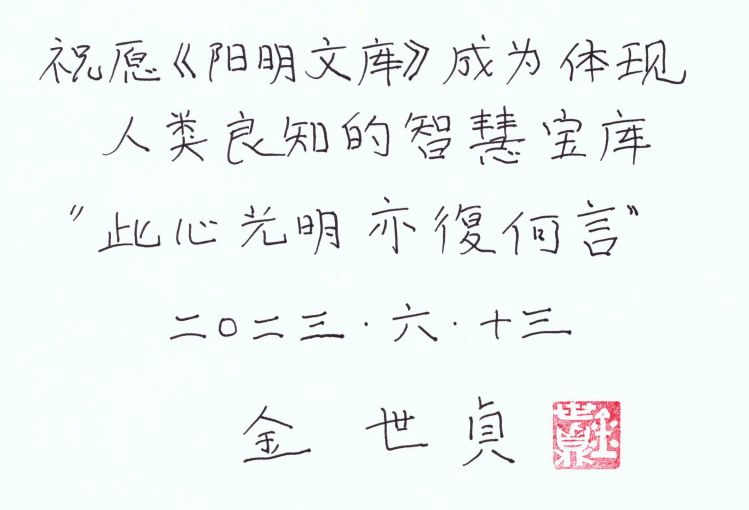 祝愿《阳明文库》成为体现
人类良知的智慧宝库
“此心光明 亦復何言”
二〇二三·六·十三
金世貞